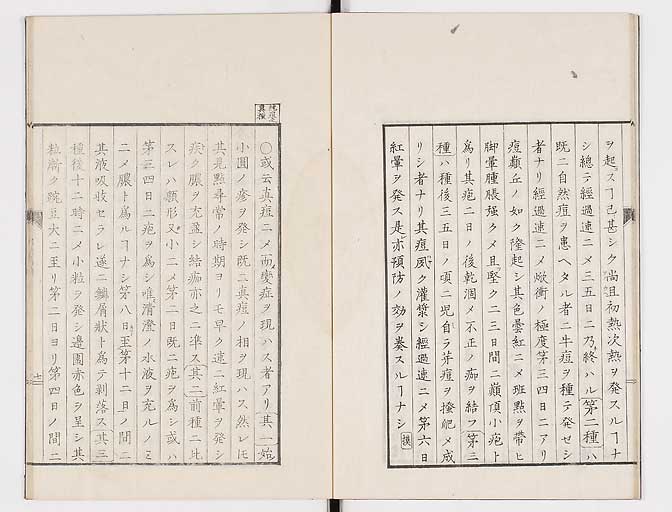 ヲ起スヿ已甚シク而且初熱次熱ヲ発スルヿナ
シ總テ經過速ニメ三五日ニ乃終ハル第二種ハ
既ニ自然痘ヲ患ヘタル者ニ牛痘ヲ種テ發セシ
者ナリ經過速ニメ焮衝ノ極度第三四日ニアリ
痘巓丘ノ如ク隆起シ其色曇紅ニメ班點ヲ帯ヒ
脚暈腫脹强クメ且堅ク二三日間ニ巓頂小疱ト
為リ其疱二日ノ後乾涸メ不正ノ痂ヲ結フ第三
種ハ種後三五日ノ頃ニ児自ラ芽痘ヲ搔爬メ成
リシ者ナリ其痘威ク灌漿シ經過速ニメ第六日
紅暈ヲ発ス是亦預防ノ効ヲ奏スルヿナシ
〇或云真痘ニメ而變症ヲ現ハス者アリ其一始
小圓ノ疹ヲ発シ既ニ真痘ノ相ヲ現ハス然レ𪜈
其見點尋常ノ時期ヨリモ早ク速ニ紅暈ヲ発シ
疾ク膿ヲ充盈シ結痂亦之ニ準ス其二前種ニ比
スレハ顆形又小ニメ第二日既ニ疱ヲ為シ或ハ
第三四日ニ疱ヲ為シ唯清澄ノ水液ヲ充ルノミ
ニメ膿ト為ルヿナシ第八日至第十二日ノ間ニ
其液吸收セラレ遂ニ麟屑狀ト為テ剥落ス其三
種後十二時ニメ小粒ヲ発シ邊圍赤色ヲ呈シ其
粒漸ク豌豆大ニ至リ第二日ヨリ第四日ノ間ニ